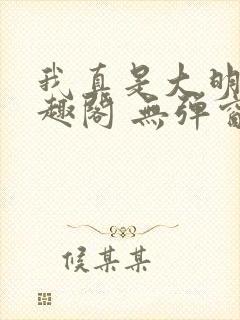 我真是大明
趣阁 無弹窗
候某某